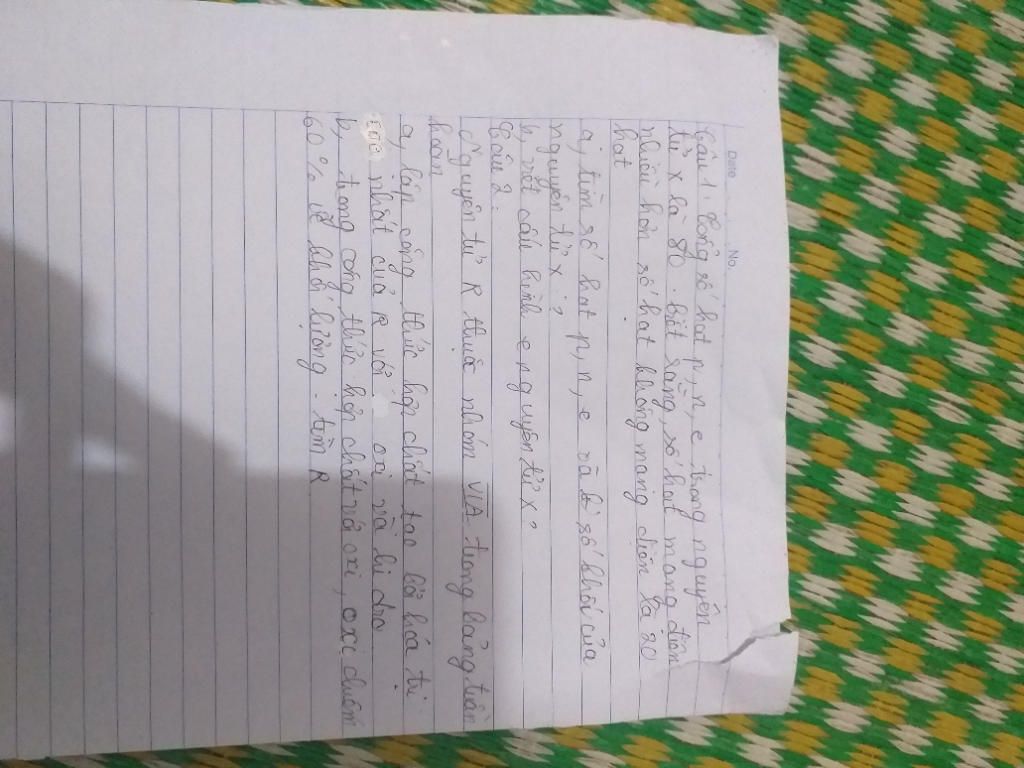 Date No.
Câu 1. Tổng số hạt p, n, e trong nguyên
tử X là 80. biết rằng, số hạt mang điện
nhiều hơn số hạt không mang điện là 20
hạt
a, tìm số hạt p, n, e và số khối của
nguyên tử X?
b, viết cấu hình e nguyên tử X?
Câu 2:
Nguyên tử R thuộc nhóm VIA trong bảng tuần
hoàn
a, lập công thức hợp chất tạo bởi hóa trị
cao nhất của R với oxi và hidro
b, trong công thức hợp chất với oxi, oxi chiếm
60% về khối lượng. tìm R